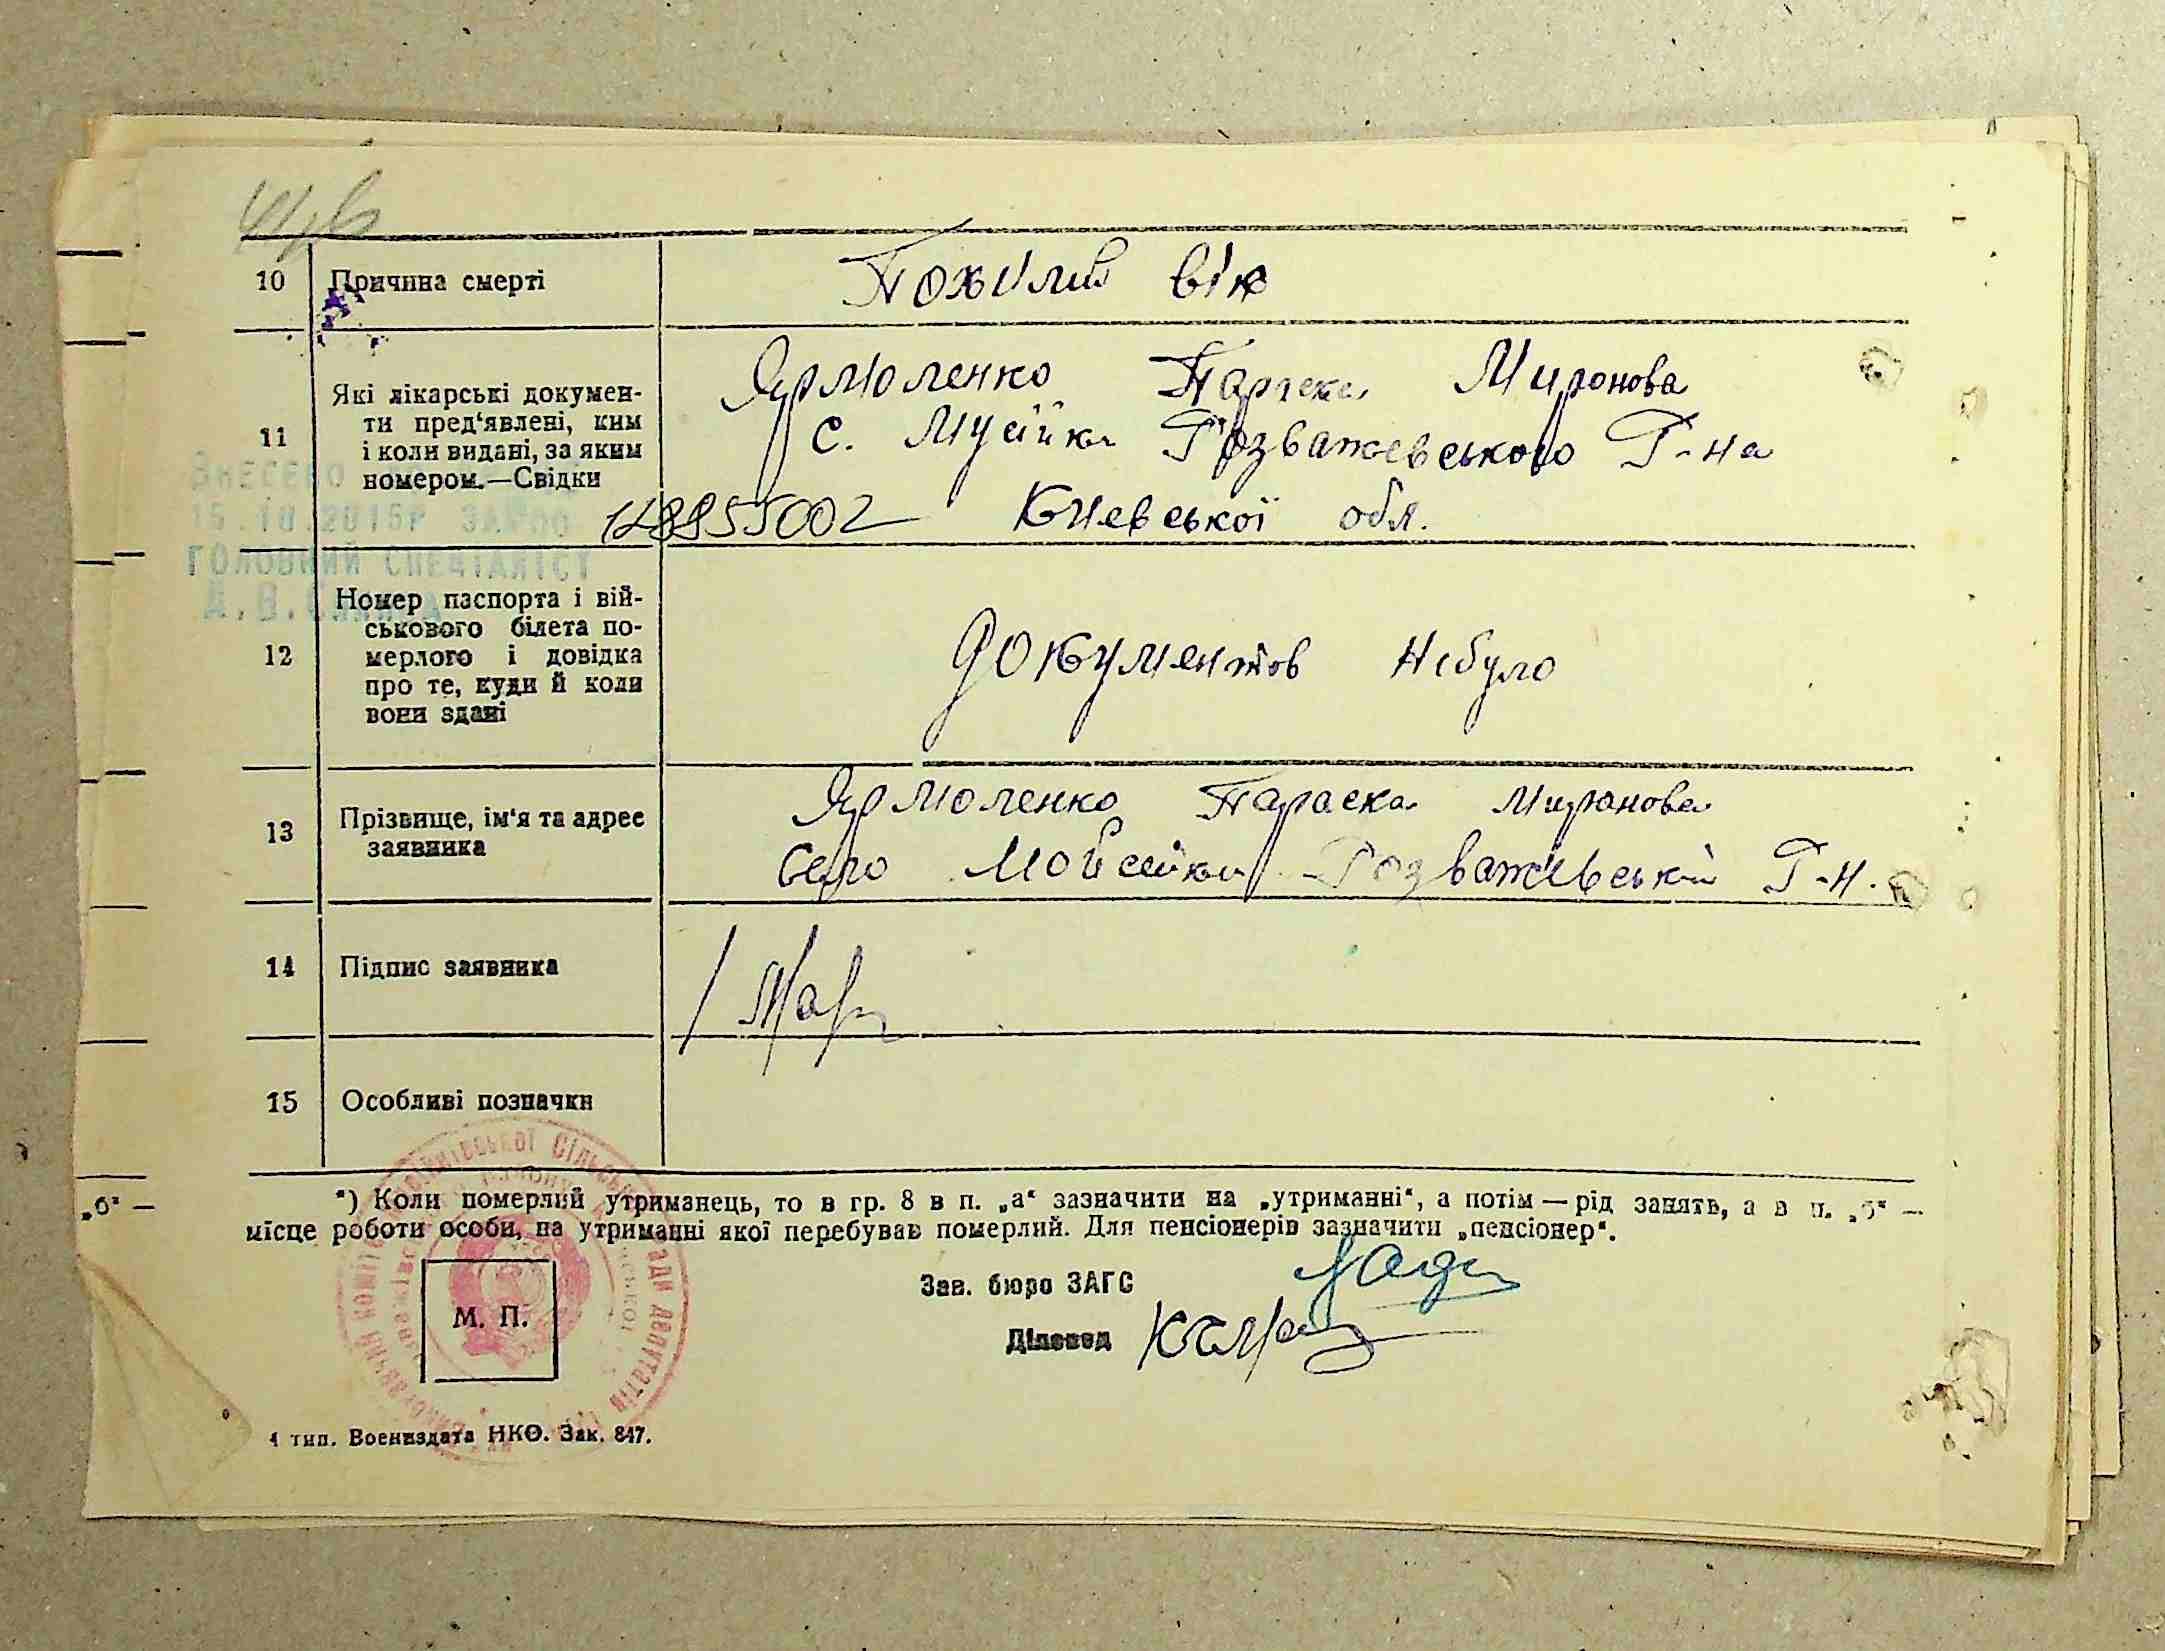 10 Причина смерті Похилий вік
11 Які лікарські докумен-
ти пред‘явлені, ким
і коли видані, за яким
номером.—Свідки
Ярмоленко Параска Миронова
с. Мусійки Розважевського Р-на
128955002 Киевської обл.
Внесено
15.10.2015р
ГОЛОВНИЙ СПЕЦІАЛІСТ
12 Номер паспорта і вій-
ськового білета по-
мерлого і довідка
про те, куди й коли
вони здані
Документов небуло
13 Прізвище, ім‘я та адрес
заявника
Ярмоленко Параска Миранова
Село Мойсейки Розважівський Р-н.
14 Підпис заявника
15 Особливі позначки
*) Коли померлий утриманець, то в гр. 8 в п. „а“ зазначити на „утриманні“, а потім — рід занять, а в п. „б“ —
місце роботи особи, на утриманні якої перебував померлий. Для пенсіонерів зазначити „пенсіонер“.
„б“ —
Зав. бюро ЗАГС
М. П.
Діловод
1 тип. Воениздата НКО. Зак. 847.